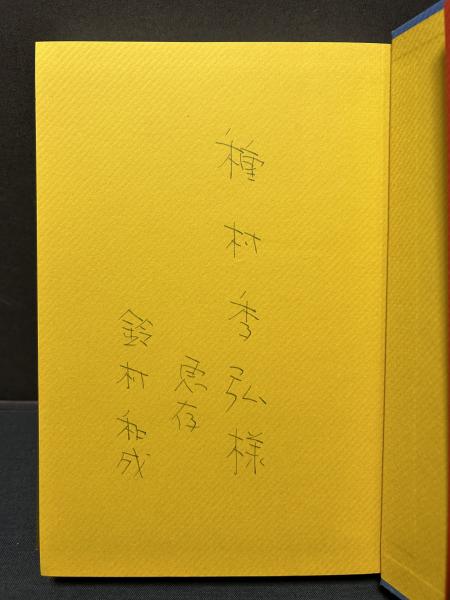 種村季弘様
恵存
鈴村和成